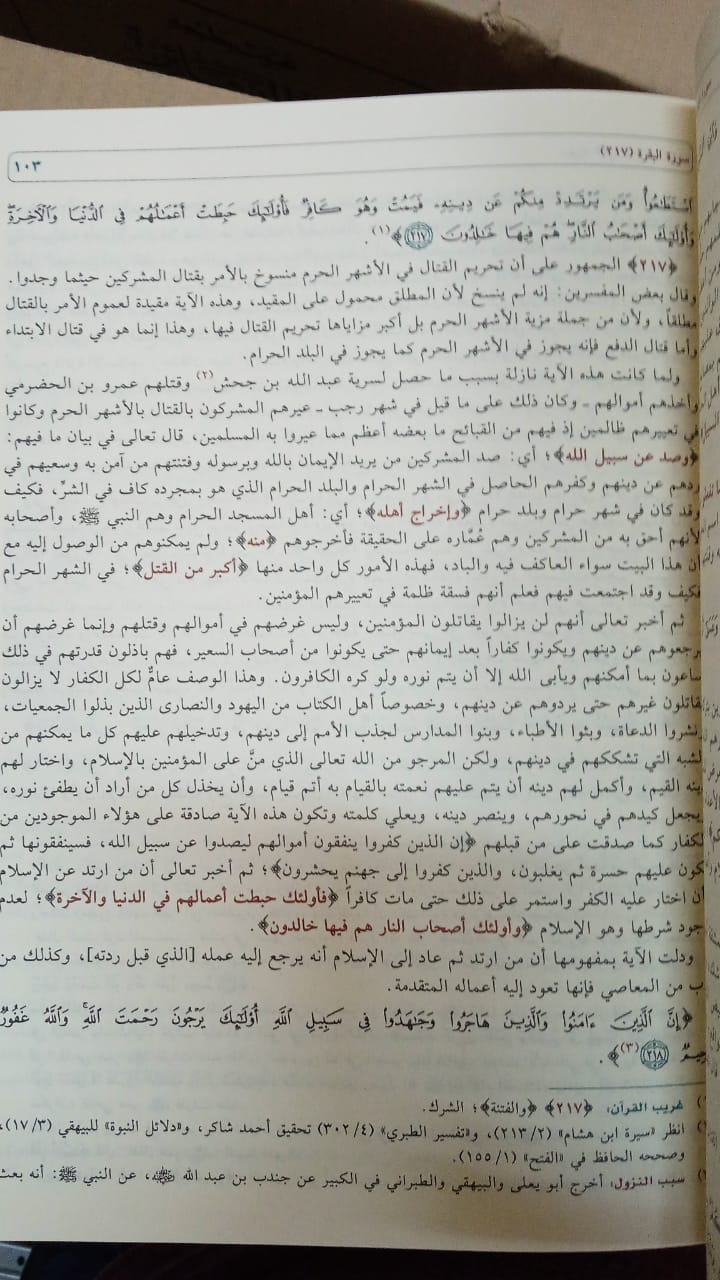 سورة البقرة (٢١٧)
١٠٣
اسْتَطَاعُواْ وَمَن يَرْتَدِدْ مِنكُمْ عَن دِينِهِۦ فَيَمُتْ وَهُوَ كَافِرٌ فَأُوْلَٰٓئِكَ حَبِطَتْ أَعْمَالُهُمْ فِى الدُّنْيَا وَالْآخِرَةِ
وَأُوْلَٰٓئِكَ أَصْحَابُ النَّارِ هُمْ فِيهَا خَالِدُونَ ٢١٧﴾(١).
﴿٢١٧﴾ الجمهور على أن تحريم القتال في الأشهر الحرم منسوخ بالأمر بقتال المشركين حيثما وجدوا.
وقال بعض المفسرين: إنه لم ينسخ لأن المطلق محمول على المقيد، وهذه الآية مقيدة لعموم الأمر بالقتال
مطلقاً، ولأن من جملة مزية الأشهر الحرم بل أكبر مزاياها تحريم القتال فيها، وهذا إنما هو في قتال الابتداء
وأما قتال الدفع فإنه يجوز في الأشهر الحرم كما يجوز في البلد الحرام.
ولما كانت هذه الآية نازلة بسبب ما حصل لسرية عبد الله بن جحش(٢) وقتلهم عمرو بن الحضرمي
وأخذهم أموالهم ـ وكان ذلك على ما قيل في شهر رجب ـ عيرهم المشركون بالقتال بالأشهر الحرم وكانوا
في تعييرهم ظالمين إذ فيهم من القبائح ما بعضه أعظم مما عيروا به المسلمين، قال تعالى في بيان ما فيهم:
﴿وصد عن سبيل الله﴾؛ أي: صد المشركين من يريد الإيمان بالله وبرسوله وفتنتهم من آمن به وسعيهم في
ردهم عن دينهم وكفرهم الحاصل في الشهر الحرام والبلد الحرام الذي هو بمجرده كاف في الشرِّ، فكيف
وقد كان في شهر حرام وبلد حرام ﴿وإخراج أهله﴾؛ أي: أهل المسجد الحرام وهم النبي ﷺ، وأصحابه
لأنهم أحق به من المشركين وهم عُمَّاره على الحقيقة فأخرجوهم ﴿منه﴾؛ ولم يمكنوهم من الوصول إليه مع
أن هذا البيت سواء العاكف فيه والباد، فهذه الأمور كل واحد منها ﴿أكبر من القتل﴾؛ في الشهر الحرام
فكيف وقد اجتمعت فيهم فعلم أنهم فسقة ظلمة في تعييرهم المؤمنين.
ثم أخبر تعالى أنهم لن يزالوا يقاتلون المؤمنين، وليس غرضهم في أموالهم وقتلهم وإنما غرضهم أن
يرجعوهم عن دينهم ويكونوا كفاراً بعد إيمانهم حتى يكونوا من أصحاب السعير، فهم باذلون قدرتهم في ذلك
ساعون بما أمكنهم ويأبى الله إلا أن يتم نوره ولو كره الكافرون. وهذا الوصف عامٌّ لكل الكفار لا يزالون
يقاتلون غيرهم حتى يردوهم عن دينهم، وخصوصاً أهل الكتاب من اليهود والنصارى الذين بذلوا الجمعيات،
ونشروا الدعاة، وبثوا الأطباء، وبنوا المدارس لجذب الأمم إلى دينهم، وتدخيلهم عليهم كل ما يمكنهم من
الشبه التي تشككهم في دينهم، ولكن المرجو من الله تعالى الذي منَّ على المؤمنين بالإسلام، واختار لهم
دينه القيم، وأكمل لهم دينه أن يتم عليهم نعمته بالقيام به أتم قيام، وأن يخذل كل من أراد أن يطفئ نوره،
ويجعل كيدهم في نحورهم، وينصر دينه، ويعلي كلمته وتكون هذه الآية صادقة على هؤلاء الموجودين من
الكفار كما صدقت على من قبلهم ﴿إن الذين كفروا ينفقون أموالهم ليصدوا عن سبيل الله، فسينفقونها ثم
تكون عليهم حسرة ثم يغلبون، والذين كفروا إلى جهنم يحشرون﴾؛ ثم أخبر تعالى أن من ارتد عن الإسلام
بأن اختار عليه الكفر واستمر على ذلك حتى مات كافراً ﴿فأولئك حبطت أعمالهم في الدنيا والآخرة﴾؛ لعدم
وجود شرطها وهو الإسلام ﴿وأولئك أصحاب النار هم فيها خالدون﴾.
ودلت الآية بمفهومها أن من ارتد ثم عاد إلى الإسلام أنه يرجع إليه عمله [الذي قبل ردته]، وكذلك من
تاب من المعاصي فإنها تعود إليه أعماله المتقدمة.
﴿إِنَّ الَّذِينَ ءَامَنُواْ وَالَّذِينَ هَاجَرُواْ وَجَٰهَدُواْ فِى سَبِيلِ اللَّهِ أُوْلَٰٓئِكَ يَرْجُونَ رَحْمَتَ اللَّهِ وَاللَّهُ غَفُورٌ
رَّحِيمٌ ٢١٨﴾(٣).
غريب القرآن: ﴿٢١٧﴾ ﴿والفتنة﴾؛ الشرك.
انظر «سيرة ابن هشام» (٢/٢١٣)، و«تفسير الطبري» (٤/٣٠٢) تحقيق أحمد شاكر، و«دلائل النبوة» للبيهقي (٣/١٧)،
وصححه الحافظ في «الفتح» (١/١٥٥).
سبب النزول: أخرج أبو يعلى والبيهقي والطبراني في الكبير عن جندب بن عبد الله رضي الله عنه، عن النبي ﷺ: أنه بعث